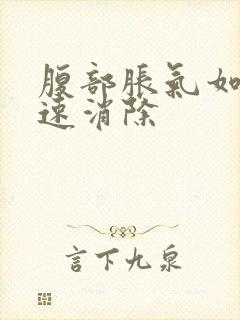 腹部脹氣如
速消除
言下九泉